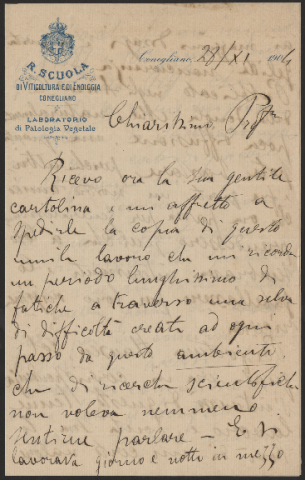 R. SCUOLA
DI VITICOLTURA E DI ENOLOGIA
CONEGLIANO
LABORATORIO
di Patologia Vegetale
Conegliano, 27/XI 1904
Chiarissimo Prof.
Ricevo ora la sua gentile
cartolina e mi affretto a
spedirle la copia di questo
umile lavoro che mi ricorda
un periodo lunghissimo di
fatiche a traverso una selva
di difficoltà create ad ogni
passo da questo ambiente
che di ricerche scientifiche
non voleva nemmeno
sentirne parlare — E si
lavorava giorno e notte in mezzo